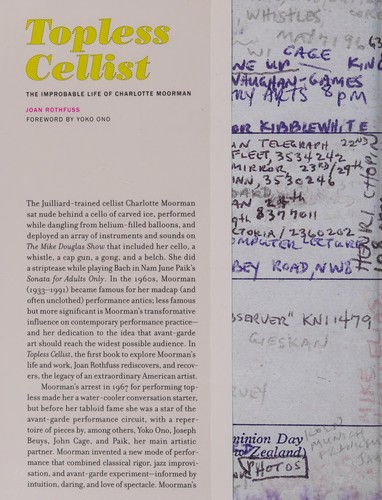 Topless
Cellist
THE IMPROBABLE LIFE OF CHARLOTTE MOORMAN
JOAN ROTHFUSS
FOREWORD BY YOKO ONO
The Juilliard-trained cellist Charlotte Moorman
sat nude behind a cello of carved ice, performed
while dangling from helium-filled balloons, and
deployed an array of instruments and sounds on
The Mike Douglas Show that included her cello, a
whistle, a cap gun, a gong, and a belch. She did
a striptease while playing Bach in Nam June Paik's
Sonata for Adults Only. In the 1960s, Moorman
(1933–1991) became famous for her madcap (and
often unclothed) performance antics; less famous
but more significant is Moorman's transformative
influence on contemporary performance practice—
and her dedication to the idea that avant-garde
art should reach the widest possible audience. In
Topless Cellist, the first book to explore Moorman's
life and work, Joan Rothfuss rediscovers, and recov-
ers, the legacy of an extraordinary American artist.
Moorman's arrest in 1967 for performing top-
less made her a water-cooler conversation starter,
but before her tabloid fame she was a star of the
avant-garde performance circuit, with a reper-
toire of pieces by, among others, Yoko Ono, Joseph
Beuys, John Cage, and Paik, her main artistic
partner. Moorman invented a new mode of perfor-
mance that combined classical rigor, jazz improvi-
sation, and avant-garde experiment—informed by
intuition, daring, and love of spectacle. Moorman's
WHISTLES
CAGE
NE UP KING
VAUGHAN-GAMES
RY ARTS 8 PM
OR KIBBLEWHITE
AN TELEGRAPH 22ND
FLEET, 3534242
MIRROR, 23RD/29th
INN, 3530246
AN 24th
9th 8377011
CTORIA/2360202
COMPUTER LECTURE
BEY ROAD, NW8
HENRI CHOPIN
BSERVER" KNI 1479
GIESKAN
RVEY
MIKE
minion Day
Zealand)
PHOTOS
MUNICH